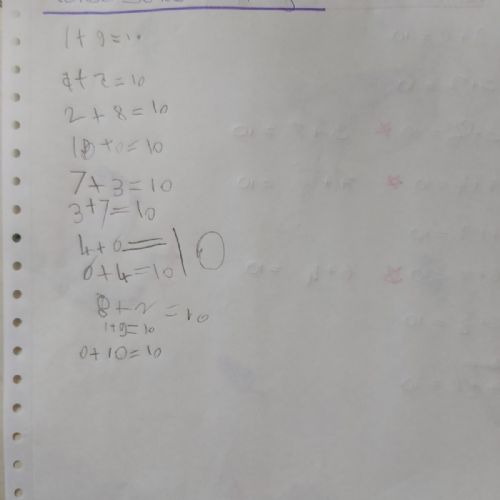 1+9=10
2+8=10
10+0=10
7+3=10
3+7=10
4+6=10
6+4=10
8+2=10
1+9=10
0+10=10